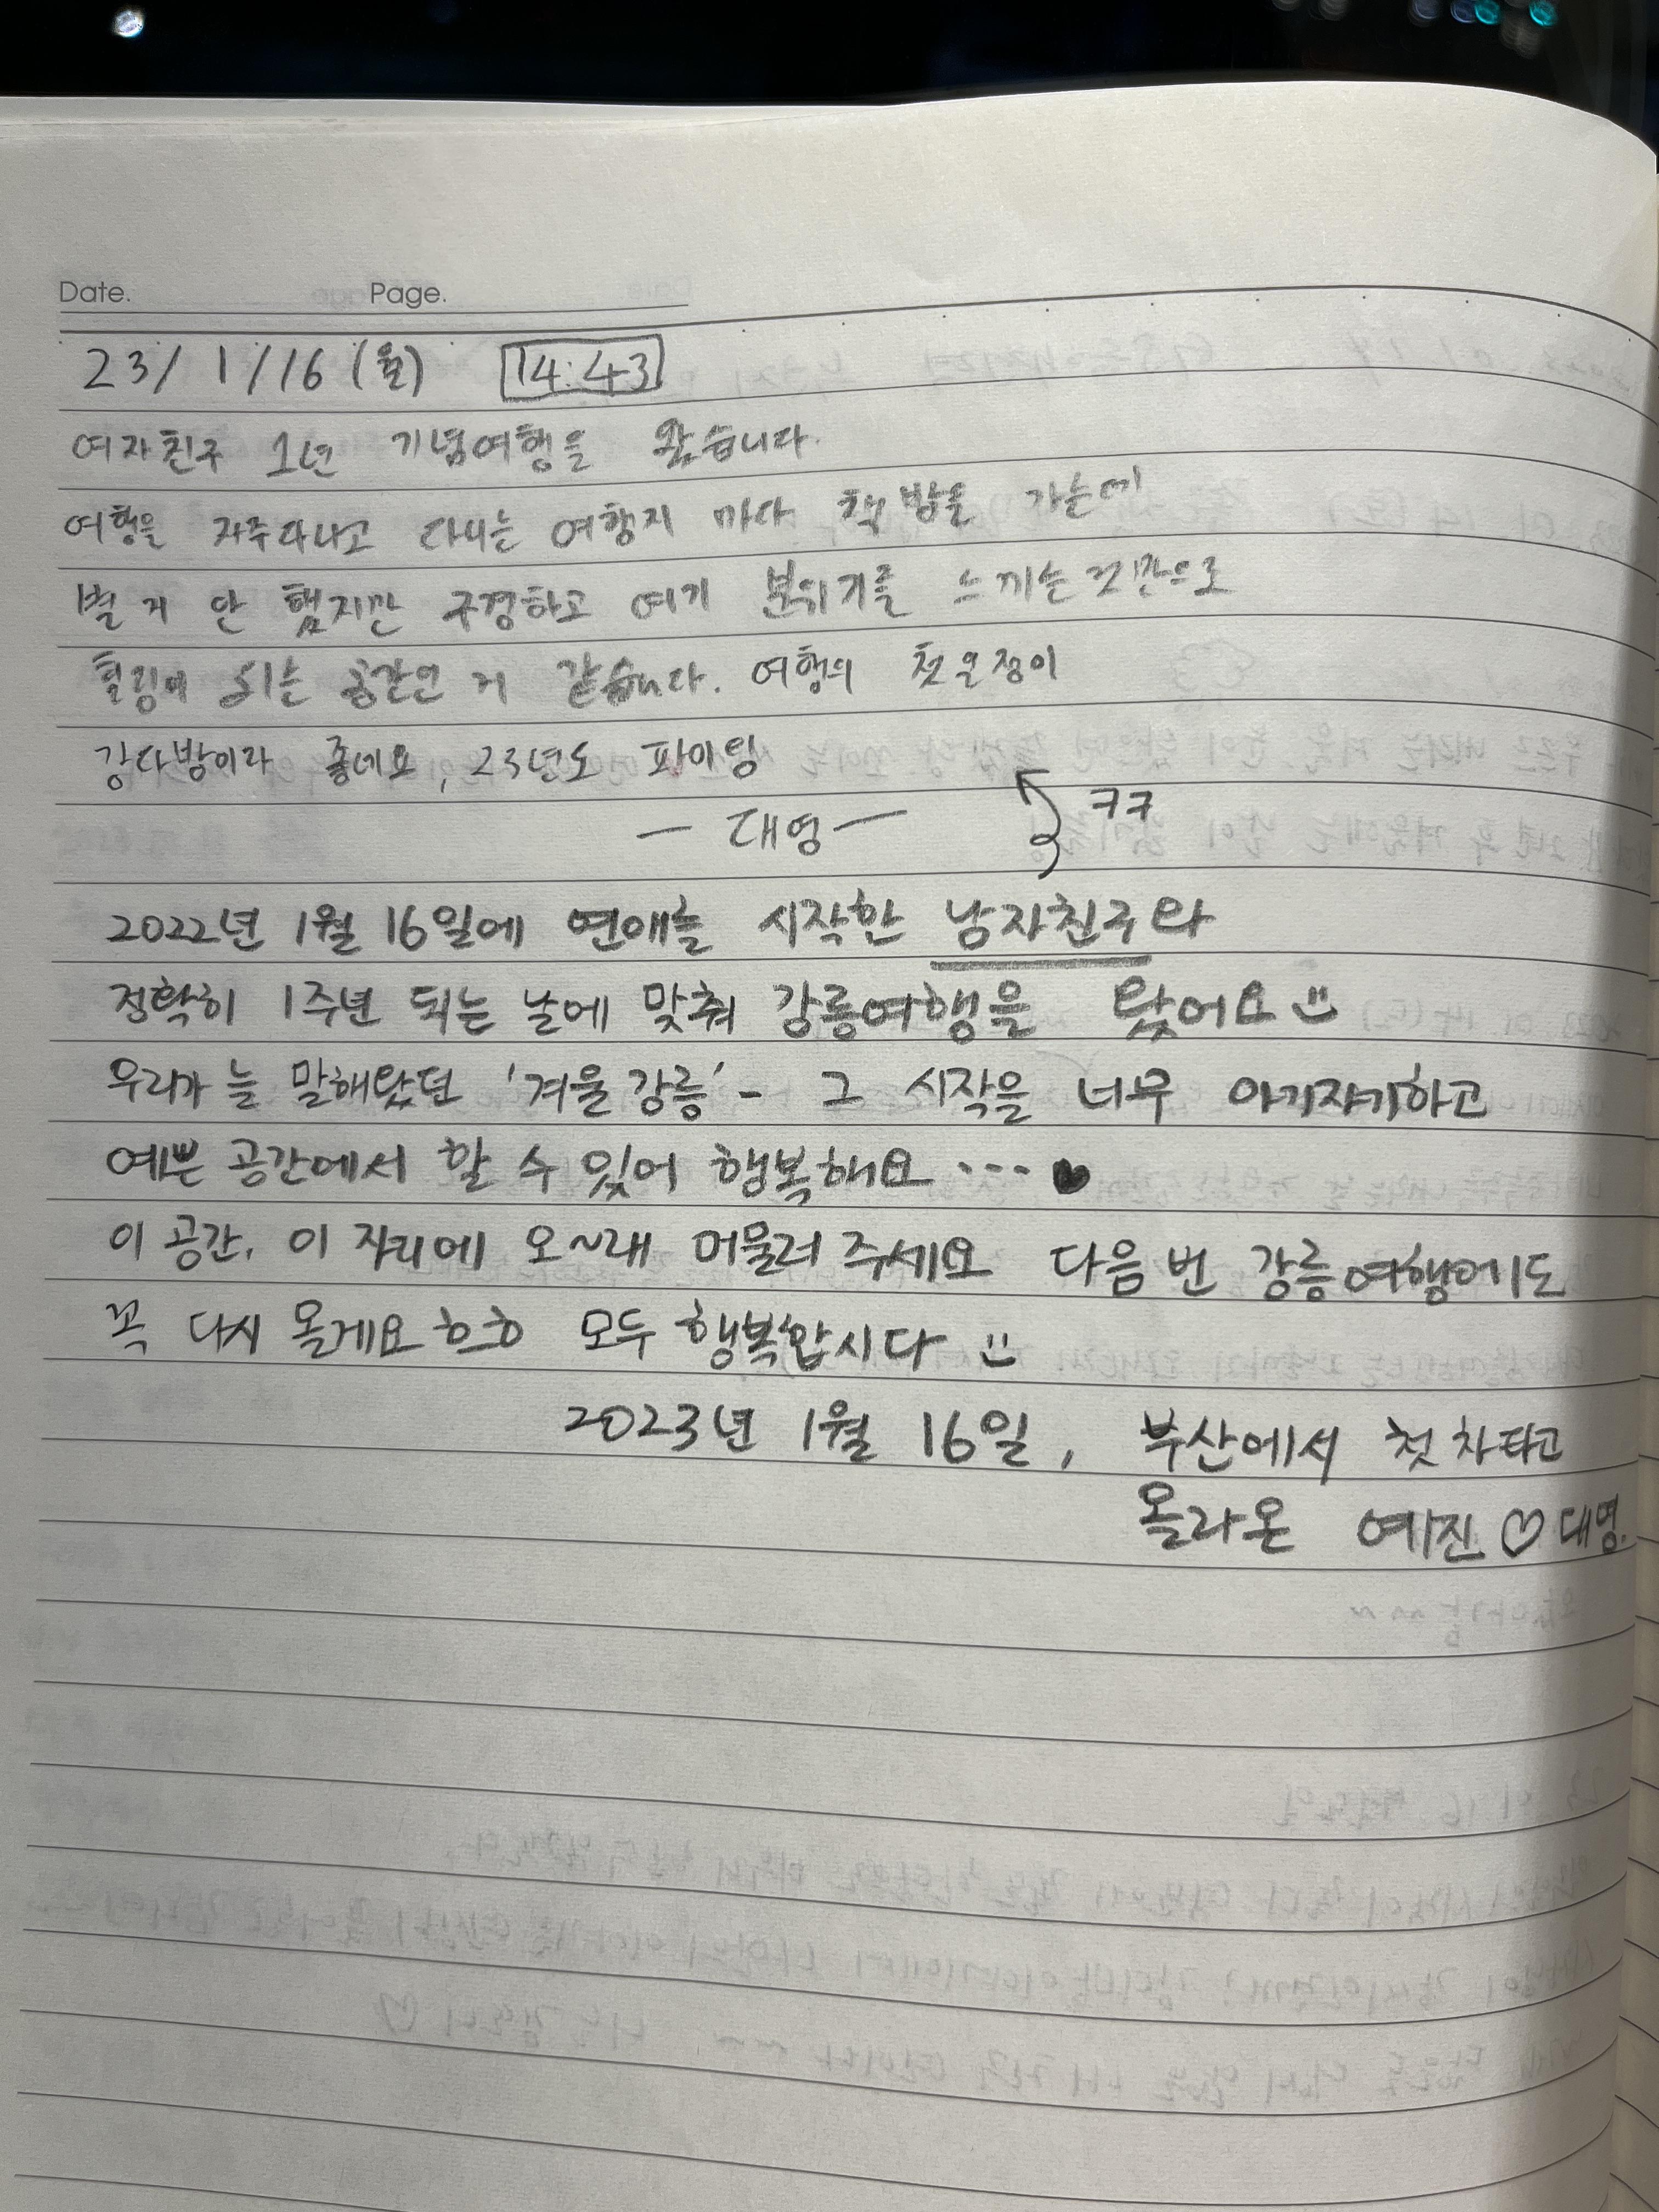 Date. Page.
23/ 1/16 (월) 14:43
여자친구 1년 기념여행을 왔습니다.
여행을 자주다니고 다니는 여행지 마다 책방을 가는데
별 거 안 했지만 구경하고 여기 분위기를 느끼는 것만으로
힐링이 되는 공간인 거 같습니다. 여행의 첫 일정이
강다방이라 좋네요, 23년도 파이팅
— 대영 —
ㅋㅋ
2022년 1월 16일에 연애를 시작한 남자친구와
정확히 1주년 되는 날에 맞춰 강릉여행을 왔어요
우리가 늘 말해왔던 '겨울 강릉' - 그 시작을 너무 아기자기하고
예쁜 공간에서 할 수 있어 행복해요 ... ♥
이 공간, 이 자리에 오~래 머물러 주세요 다음 번 강릉여행에도
꼭 다시 올게요 ㅎㅎ 모두 행복합시다
2023년 1월 16일, 부산에서 첫 차 타고
올라온 예진 ♡ 대영.